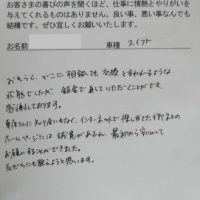 お客さまの喜びの声を聞くほど、仕事に情熱とやりがいを
与えてくれるものはありません。良い事、悪い事なんでも
結構です。ぜひ宜しくお願いいたします。
お名前 車種 スイフト
おそらく、どこに相談しても交換と言われるような
状態でしたが、格安で直していただくことができ
感謝しております。
車屋さんに知り合いもなく、インターネットで探し
ホームページには誠実があふれ、最初から安心して
お願いすることができました。
友だちにも教えようと思います。